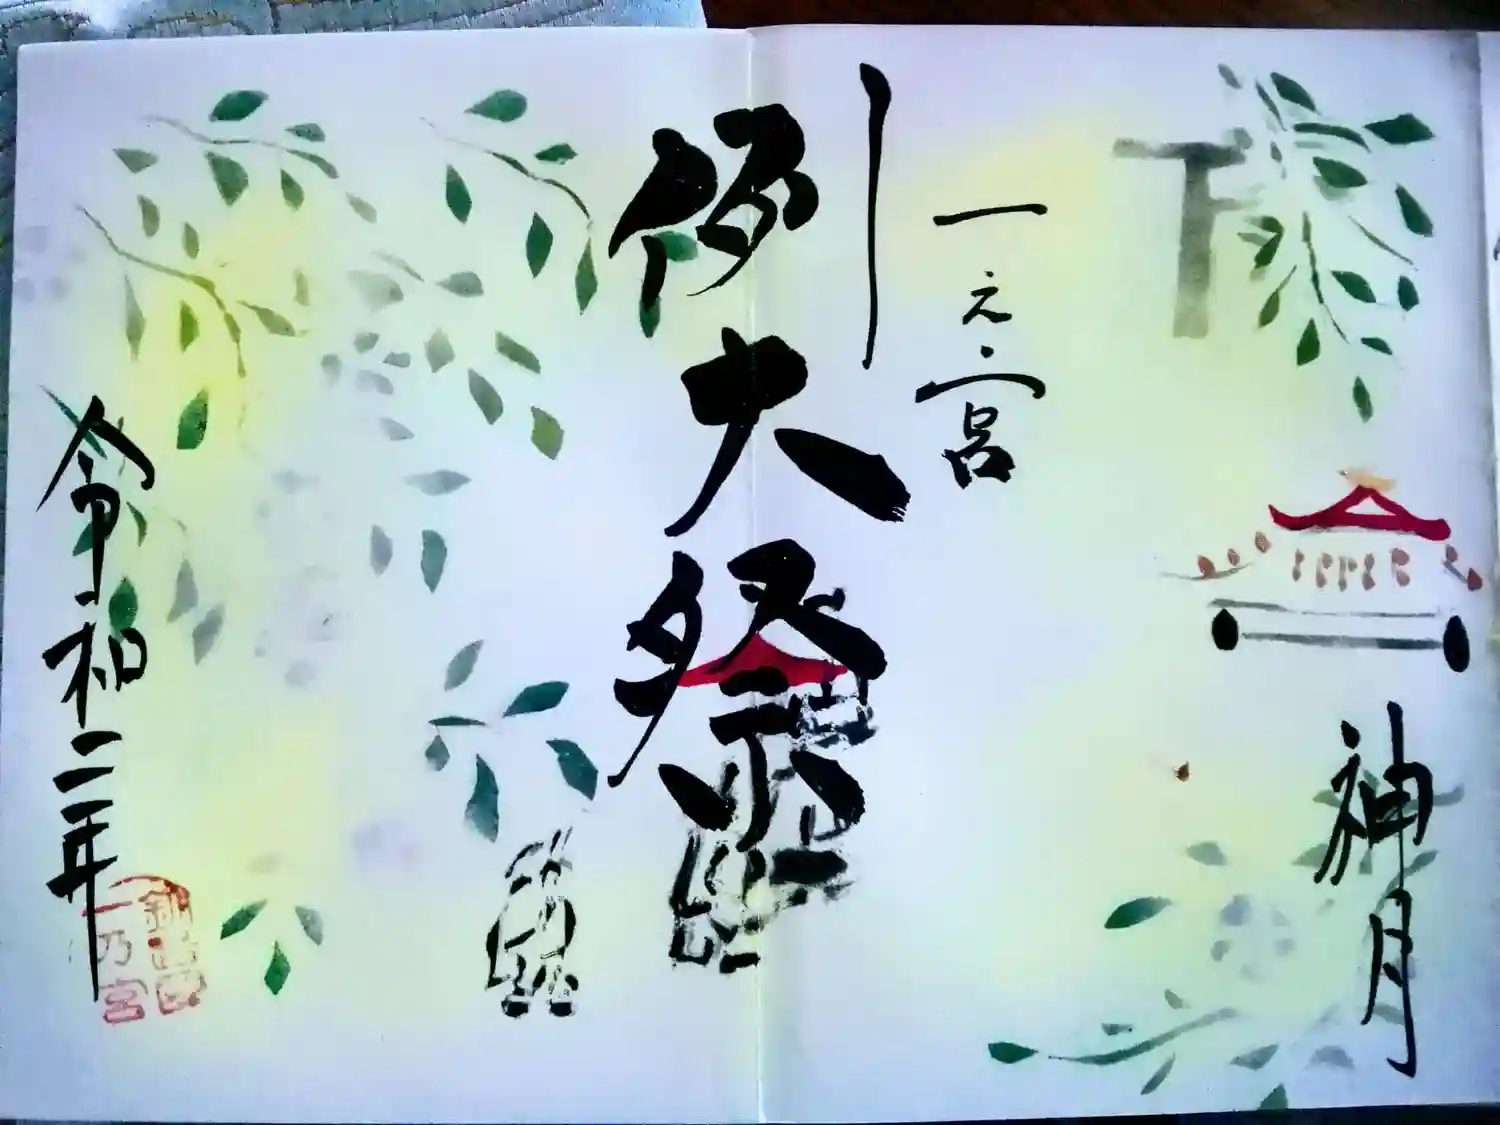 神月
一之宮
例大祭
令和二年
一乃宮